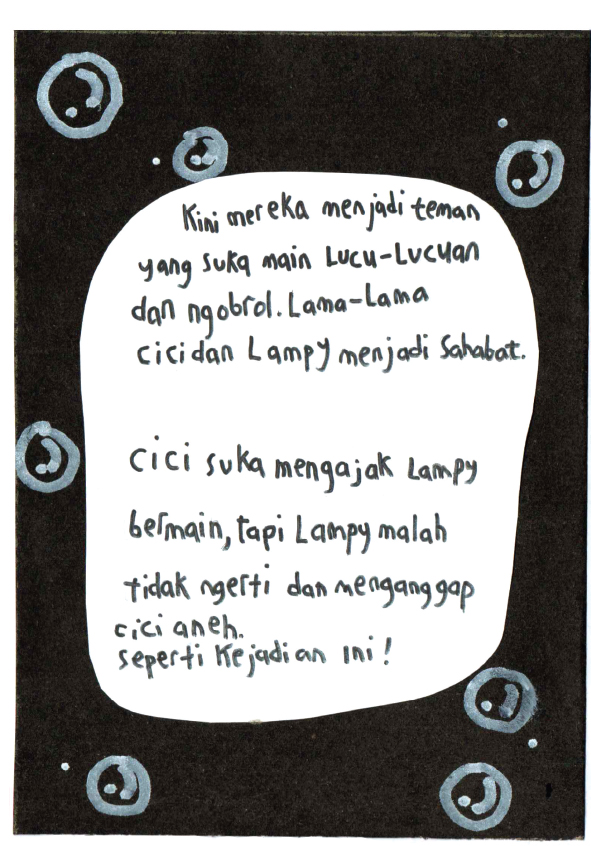 Kini mereka menjadi teman
yang suka main Lucu-Lucuan
dan ngobrol. Lama-Lama
cici dan Lampy menjadi Sahabat.
cici suka mengajak Lampy
bermain, tapi Lampy malah
tidak ngerti dan menganggap
cici aneh.
seperti Kejadian ini!